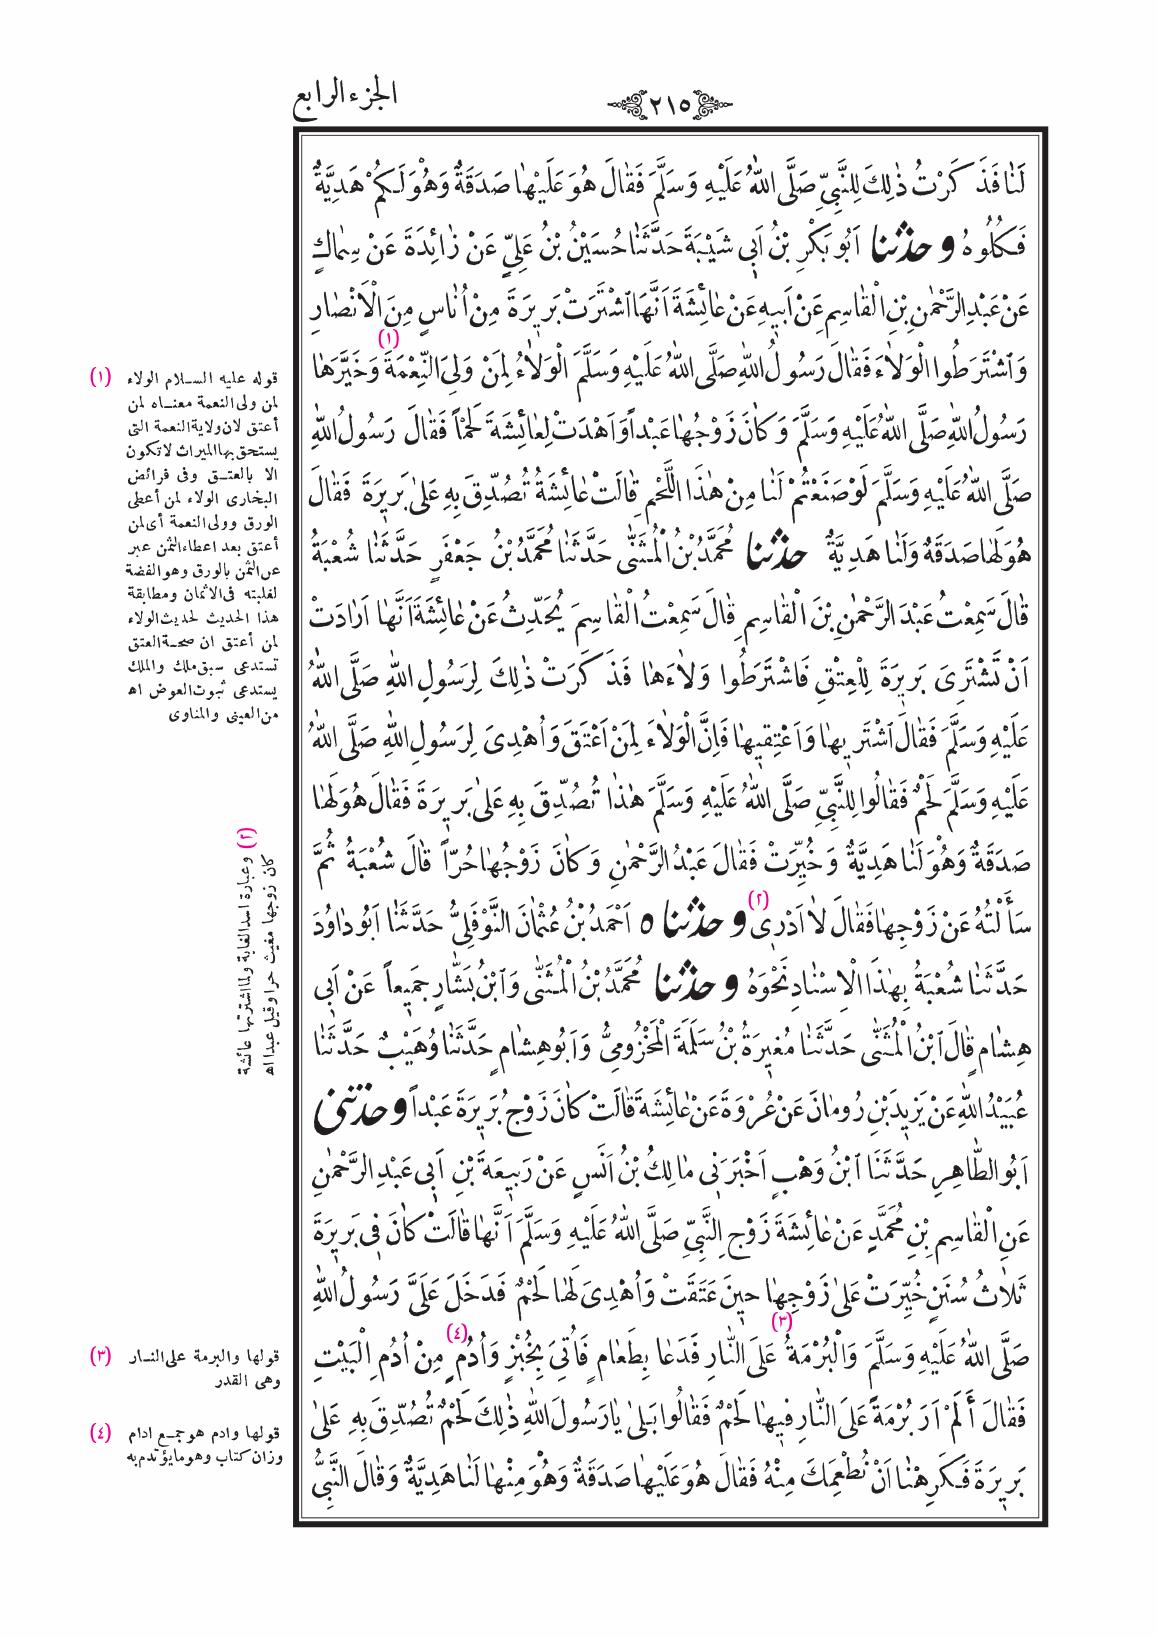 الجزء الرابع
٢١٥
لَنَا فَذَكَرْتُ ذٰلِكَ لِلنَّبِيِّ صَلَّى اللهُ عَلَيْهِ وَسَلَّمَ فَقَالَ هُوَ عَلَيْهَا صَدَقَةٌ وَهُوَ لَكُمْ هَدِيَّةٌ
فَكُلُوهُ وحدثنا اَبُو بَكْرِ بْنُ اَبِي شَيْبَةَ حَدَّثَنَا حُسَيْنُ بْنُ عَلِيٍّ عَنْ زَائِدَةَ عَنْ سِمَاكٍ
عَنْ عَبْدِ الرَّحْمٰنِ بْنِ الْقَاسِمِ عَنْ اَبِيهِ عَنْ عَائِشَةَ اَنَّهَا اشْتَرَتْ بَرِيرَةَ مِنْ اُنَاسٍ مِنَ الْاَنْصَارِ
وَاشْتَرَطُوا الْوَلَاءَ فَقَالَ رَسُولُ اللهِ صَلَّى اللهُ عَلَيْهِ وَسَلَّمَ الْوَلَاءُ لِمَنْ وَلِيَ النِّعْمَةَ (١) وَخَيَّرَهَا
رَسُولُ اللهِ صَلَّى اللهُ عَلَيْهِ وَسَلَّمَ وَكَانَ زَوْجُهَا عَبْداً وَاَهْدَتْ لِعَائِشَةَ لَحْماً فَقَالَ رَسُولُ اللهِ
صَلَّى اللهُ عَلَيْهِ وَسَلَّمَ لَوْ صَنَعْتُمْ لَنَا مِنْ هٰذَا اللَّحْمِ قَالَتْ عَائِشَةُ تُصُدِّقَ بِهِ عَلٰى بَرِيرَةَ فَقَالَ
هُوَ لَهَا صَدَقَةٌ وَلَنَا هَدِيَّةٌ حدثنا مُحَمَّدُ بْنُ الْمُثَنّٰى حَدَّثَنَا مُحَمَّدُ بْنُ جَعْفَرٍ حَدَّثَنَا شُعْبَةُ
قَالَ سَمِعْتُ عَبْدَ الرَّحْمٰنِ بْنَ الْقَاسِمِ قَالَ سَمِعْتُ الْقَاسِمَ يُحَدِّثُ عَنْ عَائِشَةَ اَنَّهَا اَرَادَتْ
اَنْ تَشْتَرِىَ بَرِيرَةَ لِلْعِتْقِ فَاشْتَرَطُوا وَلَاءَهَا فَذَكَرَتْ ذٰلِكَ لِرَسُولِ اللهِ صَلَّى اللهُ
عَلَيْهِ وَسَلَّمَ فَقَالَ اشْتَرِيهَا وَاَعْتِقِيهَا فَاِنَّ الْوَلَاءَ لِمَنْ اَعْتَقَ وَاُهْدِىَ لِرَسُولِ اللهِ صَلَّى اللهُ
عَلَيْهِ وَسَلَّمَ لَحْمٌ فَقَالُوا لِلنَّبِيِّ صَلَّى اللهُ عَلَيْهِ وَسَلَّمَ هٰذَا تُصُدِّقَ بِهِ عَلٰى بَرِيرَةَ فَقَالَ هُوَ لَهَا
صَدَقَةٌ وَهُوَ لَنَا هَدِيَّةٌ وَخُيِّرَتْ فَقَالَ عَبْدُ الرَّحْمٰنِ وَكَانَ زَوْجُهَا حُرّاً قَالَ شُعْبَةُ ثُمَّ
سَأَلْتُهُ عَنْ زَوْجِهَا فَقَالَ لَا اَدْرِى (٢) وحدثناه اَحْمَدُ بْنُ عُثْمَانَ النَّوْفَلِىُّ حَدَّثَنَا اَبُو دَاوُدَ
حَدَّثَنَا شُعْبَةُ بِهٰذَا الْاِسْنَادِ نَحْوَهُ وحدثنا مُحَمَّدُ بْنُ الْمُثَنّٰى وَابْنُ بَشَّارٍ جَمِيعاً عَنْ اَبِى
هِشَامٍ قَالَ ابْنُ الْمُثَنّٰى حَدَّثَنَا مُغِيرَةُ بْنُ سَلَمَةَ الْمَخْزُومِىُّ وَاَبُو هِشَامٍ حَدَّثَنَا وُهَيْبٌ حَدَّثَنَا
عُبَيْدُ اللهِ عَنْ يَزِيدَ بْنِ رُومَانَ عَنْ عُرْوَةَ عَنْ عَائِشَةَ قَالَتْ كَانَ زَوْجُ بَرِيرَةَ عَبْداً وحدثنى
اَبُو الطَّاهِرِ حَدَّثَنَا ابْنُ وَهْبٍ اَخْبَرَنِى مَالِكُ بْنُ اَنَسٍ عَنْ رَبِيعَةَ بْنِ اَبِى عَبْدِ الرَّحْمٰنِ
عَنِ الْقَاسِمِ بْنِ مُحَمَّدٍ عَنْ عَائِشَةَ زَوْجِ النَّبِىِّ صَلَّى اللهُ عَلَيْهِ وَسَلَّمَ اَنَّهَا قَالَتْ كَانَ فِى بَرِيرَةَ
ثَلَاثُ سُنَنٍ خُيِّرَتْ عَلٰى زَوْجِهَا حِينَ عَتَقَتْ وَاُهْدِىَ لَهَا لَحْمٌ فَدَخَلَ عَلَىَّ رَسُولُ اللهِ
صَلَّى اللهُ عَلَيْهِ وَسَلَّمَ وَالْبُرْمَةُ (٣) عَلَى النَّارِ فَدَعَا بِطَعَامٍ فَأُتِىَ بِخُبْزٍ وَاُدُمٍ (٤) مِنْ اُدُمِ الْبَيْتِ
فَقَالَ أَلَمْ اَرَ بُرْمَةً عَلَى النَّارِ فِيهَا لَحْمٌ فَقَالُوا بَلٰى يَا رَسُولَ اللهِ ذٰلِكَ لَحْمٌ تُصُدِّقَ بِهِ عَلٰى
بَرِيرَةَ فَكَرِهْنَا اَنْ نُطْعِمَكَ مِنْهُ فَقَالَ هُوَ عَلَيْهَا صَدَقَةٌ وَهُوَ مِنْهَا لَنَا هَدِيَّةٌ وَقَالَ النَّبِىُّ
(١) قوله عليه السلام الولاء
لمن ولى النعمة معناه لمن
أعتق لان ولاية النعمة التى
يستحق بها الميراث لا تكون
الا بالعتق وفى فرائض
البخارى الولاء لمن أعطى
الورق وولى النعمة أى لمن
أعتق بعد اعطاء الثمن عبر
عن الثمن بالورق وهو الفضة
لغلبته فى الاثمان ومطابقة
هذا الحديث لحديث الولاء
لمن أعتق ان صحة العتق
تستدعى سبق ملك والملك
يستدعى ثبوت العوض اه
من العينى والمناوى
(٢) وعبارة اسد الغابة ولما اشترتها عائشة
كان زوجها مغيث حرا وقيل عبدا اه
(٣) قولها والبرمة على النار
وهى القدر
(٤) قولها وادم هو جمع ادام
وزان كتاب وهو ما يؤتدم به